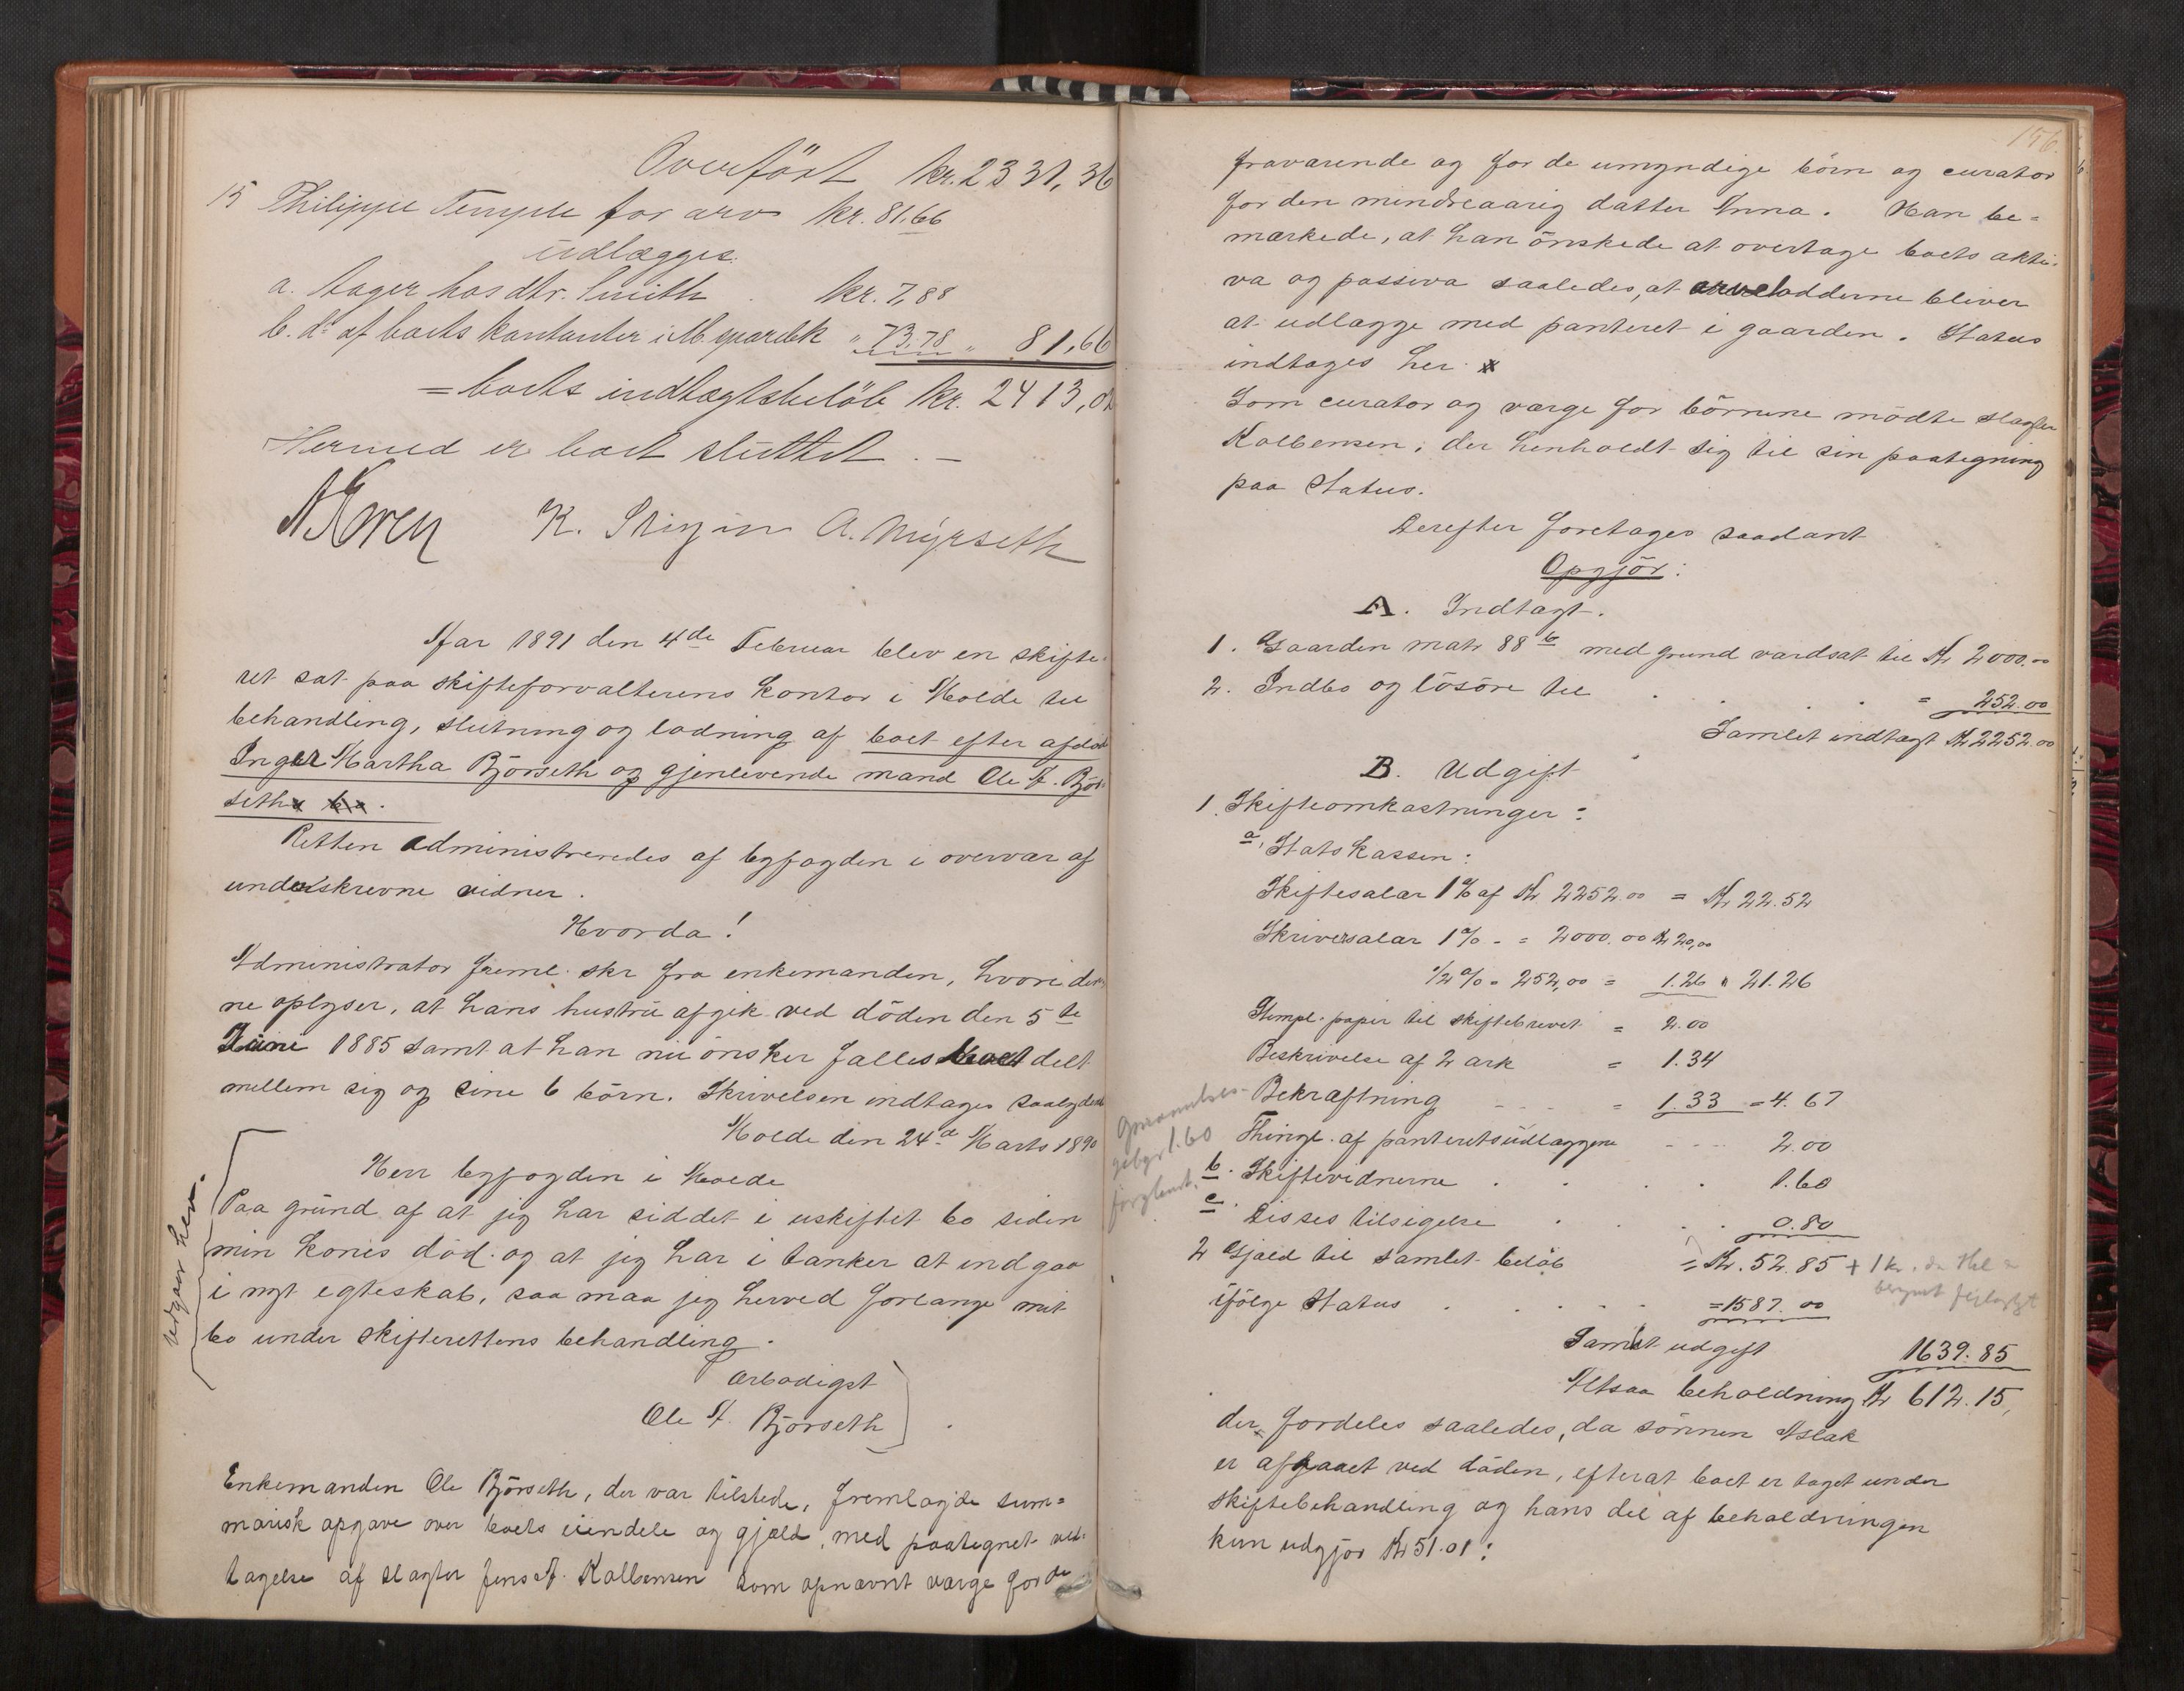 Overført kr. 2331,36
15 Philippe Temple for arv kr. 81.66
udlægges.
a. tager hos dhr. Smith . kr. 7,88
b. do af boets kontanter i M. sparebk " 73,78 " 81,66
= boets indtægtsbeløb kr. 2413,02
Hermed er boet sluttet. —
K. A. Myrseth
Aar 1891 den 4de Februar blev en skifte-
ret sat paa skifteforvalterens kontor i Molde til
behandling, slutning og lodning af boet efter afdøde
Inger Martha Bjørseth og gjenlevende mand Ole A. Bjør-
seth
Retten administreredes af byfogden i overvær af
underskrevne vidner.
Hvorda!
Administrator freml. skr fra enkemanden, hvori den-
ne oplyser, at hans hustru afgik ved døden den 5te
Juni 1885 samt at han nu ønsker fælles boet delt
mellem sig og sine 6 børn. Skrivelsen indtages saalydende
Molde den 24de Marts 1890
Herr byfogden i Molde
Paa grund af at jeg har siddet i uskiftet bo siden
min kones død. og at jeg har i tanker at indgaa
i nyt egteskab, saa maa jeg herved forlange mit
bo under skifterettens behandling.
Ærbødigst
Ole A. Bjørseth
Udgaar her.
Enkemanden Ole Bjørseth, der var tilstede, fremlagde sum-
marisk opgave over boets eiendele og gjæld, med paategnet ved-
tagelse af slagter Jens A. Kolbensen som opnævnt værge for de
156.
fraværende og for de umyndige børn og curator
for den mindreaarig datter Anna. Han be-
mærkede, at han ønskede at overtage boets akti-
va og passiva saaledes, at arvelodderne bliver
at udlægge med panteret i gaarden. Status
indtages her. x
Som curator og værge for børnene mødte slagter
Kolbensen, der henholdt sig til sin paategning
paa Status.
Derefter foretages saadant
Opgjør:
A. Indtægt.
1. Gaarden matr 88b med grund værdsat til Kr 2000.00
2. Indbo og løsøre til . . . = 252.00
Samlet indtægt Kr 2252.00
B. Udgift
1. Skifteomkostninger:
a, Statskassen:
Skiftesalær 1% af Kr. 2252.00 = Kr 22.52
Skriversalær 1% - = 2000.00 Kr 20,00
1/2% = 252,00 = 1.26 " 21.26
Stempl. papir til skiftebrevet = 2.00
Beskrivelse af 2 ark = 1.34
Bekræftning - - - = 1.33 = 4.67
Thingl. af panteretsudlæggene - - - 2.00
b. Skiftevidnerne . . . 1.60
c. Disses tilsigelse . . . 0.80
= Kr. 52.85 + 1 kr.
2 Gjæld til samlet beløb
ifølge Status . . . = 1587.00
gebyr 1.60
forglemt.
Samlet udgift 1639.85
Altsaa beholdning Kr 612.15,
der fordeles saaledes, da sønnen Aslak
er afgaaet ved døden, efterat boet er taget under
skiftebehandling og hans del af beholdningen
kun udgjør Kr 51.01: